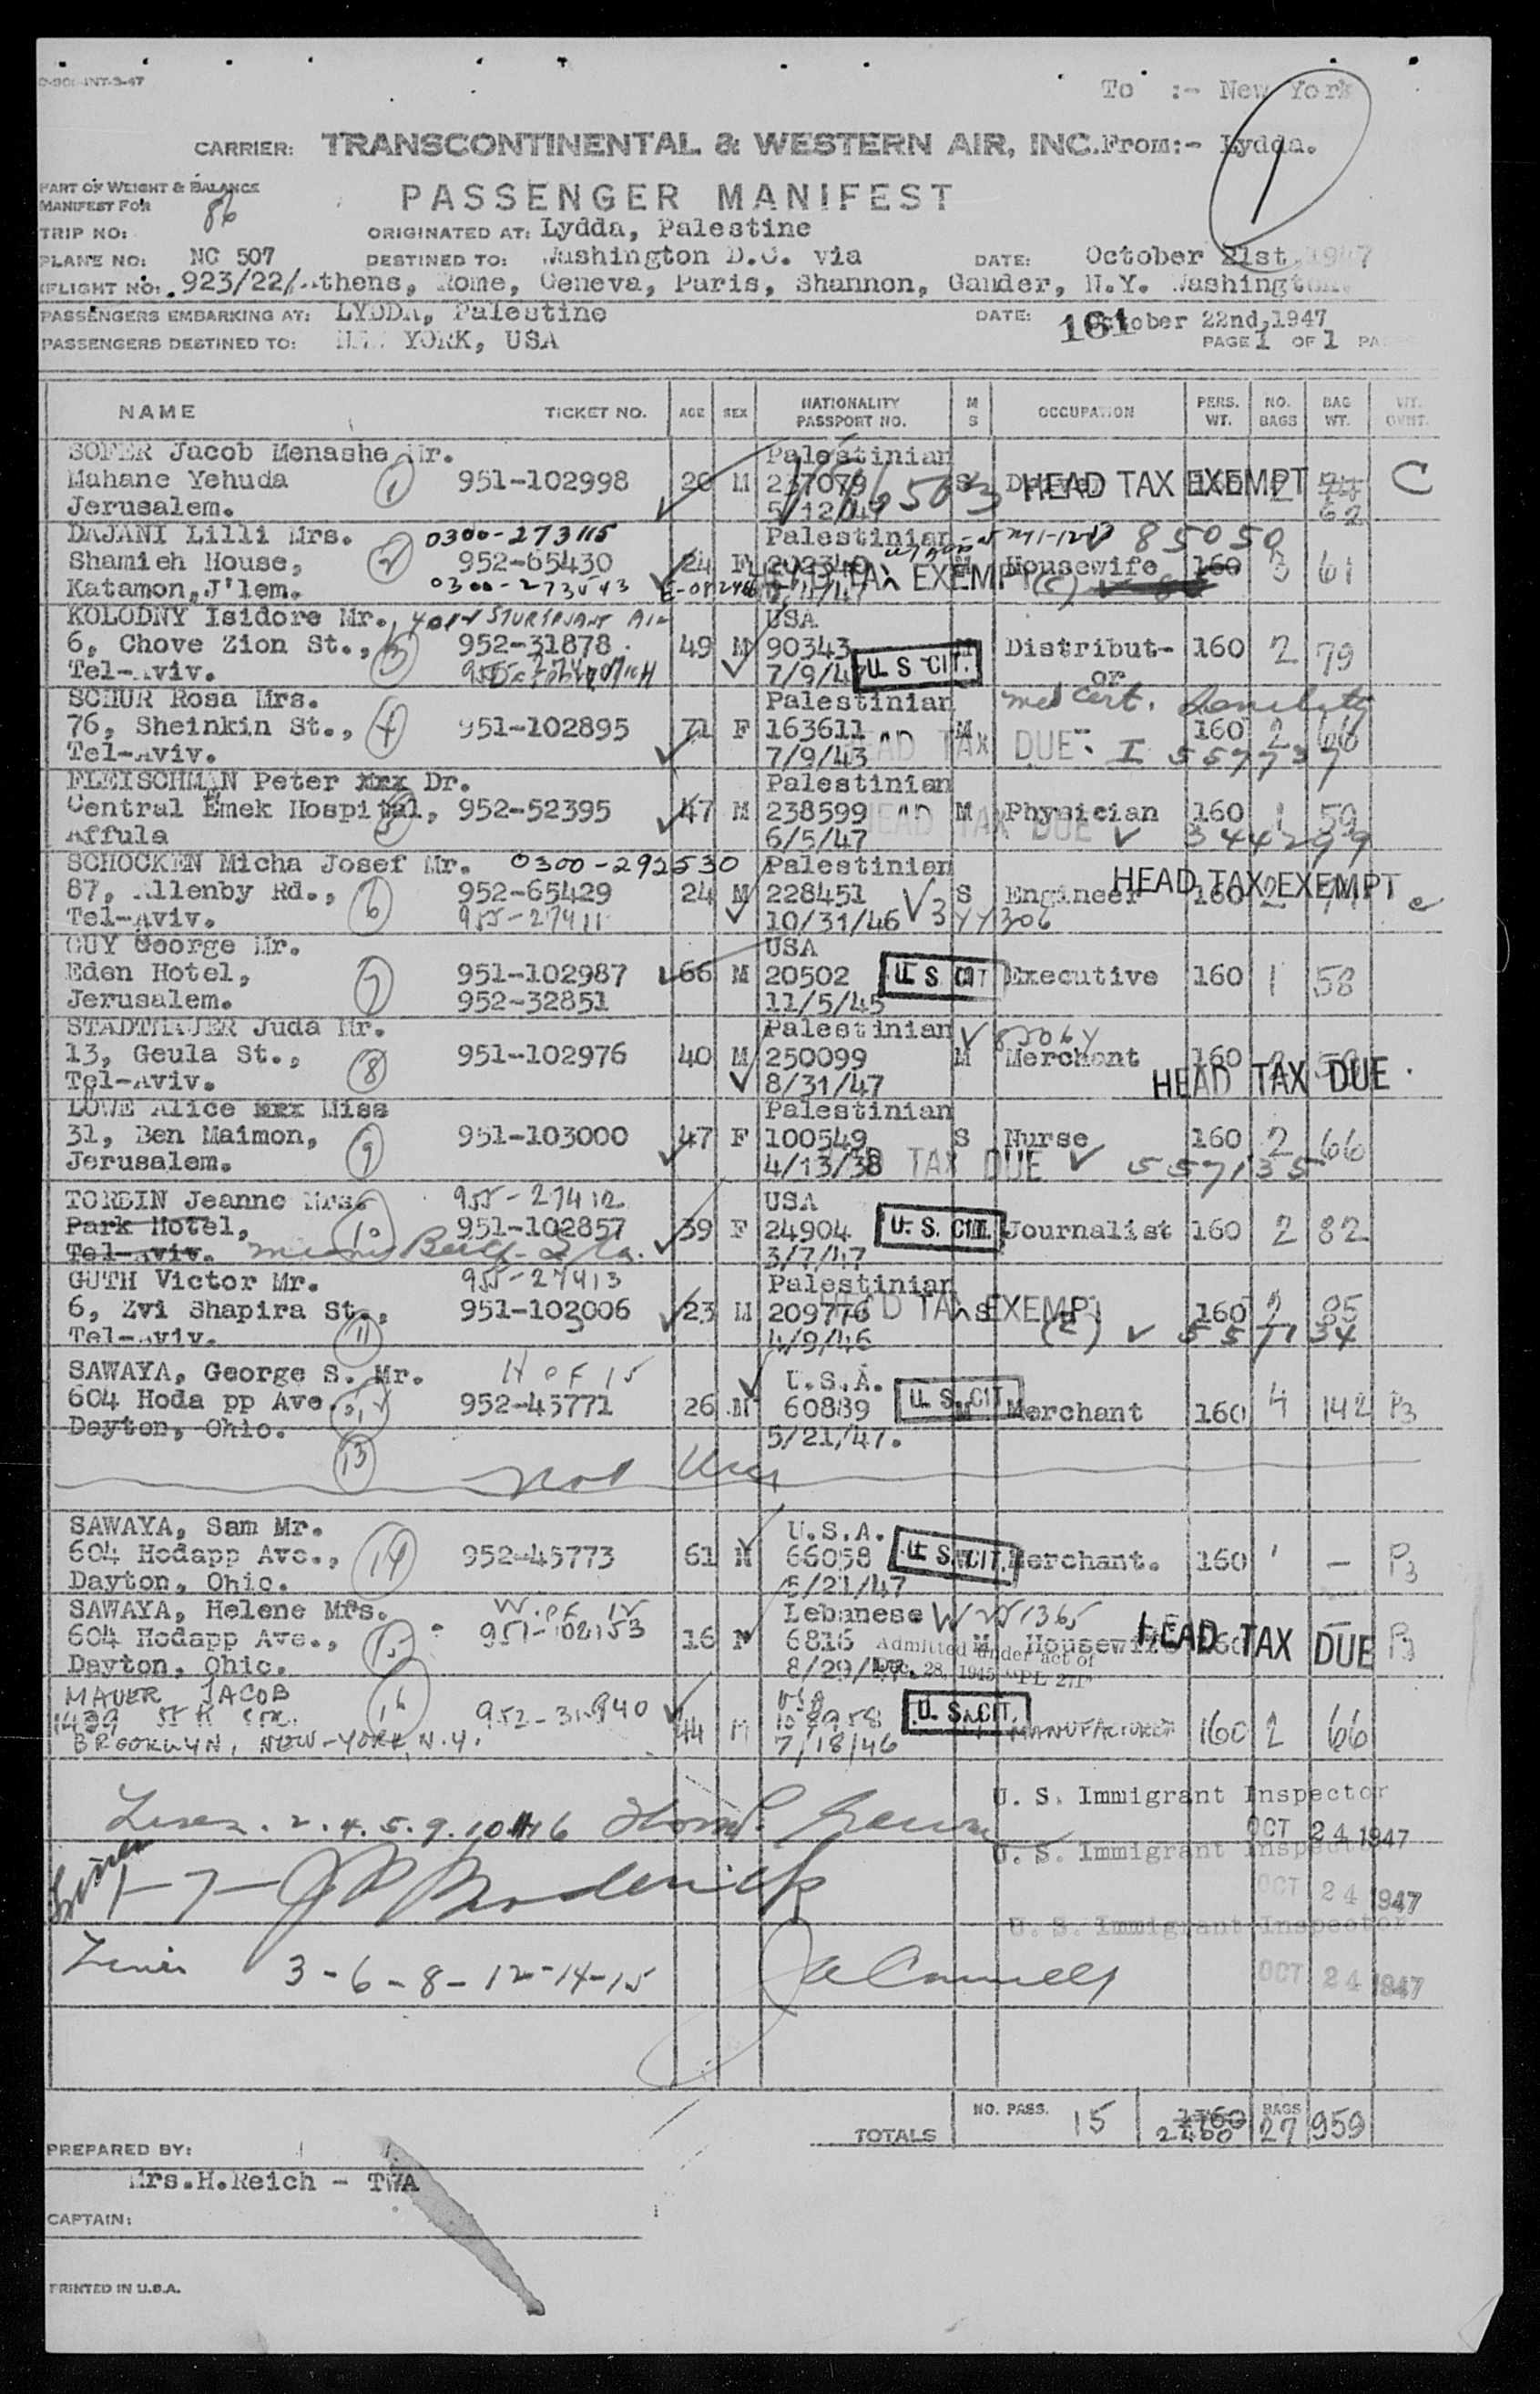 To :- New York
CARRIER: TRANSCONTINENTAL & WESTERN AIR, INC. From:- Lydda.
1
PART OF WEIGHT & BALANCE
MANIFEST FOR
86
PASSENGER MANIFEST
TRIP NO: ORIGINATED AT: Lydda, Palestine
PLANE NO: NC 507 DESTINED TO: Washington D.C. via DATE: October 21st, 1947
FLIGHT NO: 923/22/ Athens, Rome, Geneva, Paris, Shannon, Gander, N.Y. Washington.
PASSENGERS EMBARKING AT: LYDDA, Palestine DATE: October 22nd, 1947
161
PASSENGERS DESTINED TO: NEW YORK, USA PAGE 1 OF 1
NAME TICKET NO. AGE SEX NATIONALITY PASSPORT NO. M S OCCUPATION PERS. WT. NO. BAGS BAG WT.
SOFER Jacob Menashe Mr. Palestinian
Mahane Yehuda 1 951-102998 M 237079 S HEAD TAX EXEMPT 2 C
Jerusalem. 62
DAJANI Lilli Mrs. 0300-273115 Palestinian 85050
Shamieh House, 2 952-65430 24 F M Housewife 160 3 61
Katamon, J'lem. HEAD TAX EXEMPT (C)
KOLODNY Isidore Mr., USA
6, Chove Zion St., 3 952-31878 49 M 90343 M Distribut- 160 2 79
Tel-Aviv. 7/9/47 U S CIT. or
SCHUR Rosa Mrs. Palestinian med cert. Senility
76, Sheinkin St., 4 951-102895 71 F 163611 M 160 2 66
Tel-Aviv. 7/9/43 HEAD TAX DUE I 557737
FLEISCHMAN Peter xxx Dr. Palestinian
Central Emek Hospital, 5 952-52395 47 M 238599 M Physician 160 1 59
Affula 6/5/47 HEAD TAX DUE 344299
SCHOCKEN Micha Josef Mr. 0300-292530 Palestinian
87, Allenby Rd., 6 952-65429 24 M 228451 S Engineer 160 2 HEAD TAX EXEMPT
Tel-Aviv. 955-27411 10/31/46 344306
GUY George Mr. USA
Eden Hotel, 7 951-102987 66 M 20502 U S CIT Executive 160 1 58
Jerusalem. 952-32851 11/5/45
STADTHAUER Juda Mr. Palestinian 85064
13, Geula St., 8 951-102976 40 M 250099 M Merchant 160 2
Tel-Aviv. 8/31/47 HEAD TAX DUE
LOWE Alice xxx Miss Palestinian
31, Ben Maimon, 9 951-103000 47 F 100549 S Nurse 160 2 66
Jerusalem. 4/13/38 HEAD TAX DUE 557135
TORBIN Jeanne Mrs. 955-27412 USA
Park Hotel, 10 951-102857 39 F 24904 U. S. CIT. Journalist 160 2 82
Tel-Aviv. 3/7/47
GUTH Victor Mr. 955-27413 Palestinian
6, Zvi Shapira St., 11 951-102006 23 M 209776 S HEAD TAX EXEMPT 160 2 85
Tel-Aviv. 4/9/46 (C) 557134
SAWAYA, George S. Mr. H of 15 U.S.A.
604 Hoda pp Ave. 12 952-45771 26 M 60889 U. S. CIT. M Merchant 160 4 142 P3
Dayton, Ohio. 5/21/47.
13 Not Used
SAWAYA, Sam Mr. U.S.A.
604 Hodapp Ave., 14 952-45773 61 M 66058 U S CIT. Merchant. 160 1 — P3
Dayton, Ohio. 5/21/47
SAWAYA, Helene Mrs. W. of 12 Lebanese
604 Hodapp Ave., 15 951-102153 16 F 6816 M Housewife 160 — P3
HEAD TAX DUE
Admitted under act of
Dec. 28, 1945 "PL 271"
Dayton, Ohio. 8/29/47
MAUER JACOB 16 952-31940 USA
44 M U. S. CIT. M MANUFACTURER 160 2 66
BROOKLYN, NEW-YORK, N.Y. 7/18/46
2. 4. 5. 9. 10. 11. 16
U. S. Immigrant Inspector
OCT 24 1947
1 - 7 - J P Broderick U. S. Immigrant Inspector
OCT 24 1947
U. S. Immigrant Inspector
3 - 6 - 8 - 12 - 14 - 15
OCT 24 1947
TOTALS NO. PASS. 15 2400 BAGS 27 959
PREPARED BY:
Mrs.H.Reich - TWA
CAPTAIN:
PRINTED IN U.S.A.